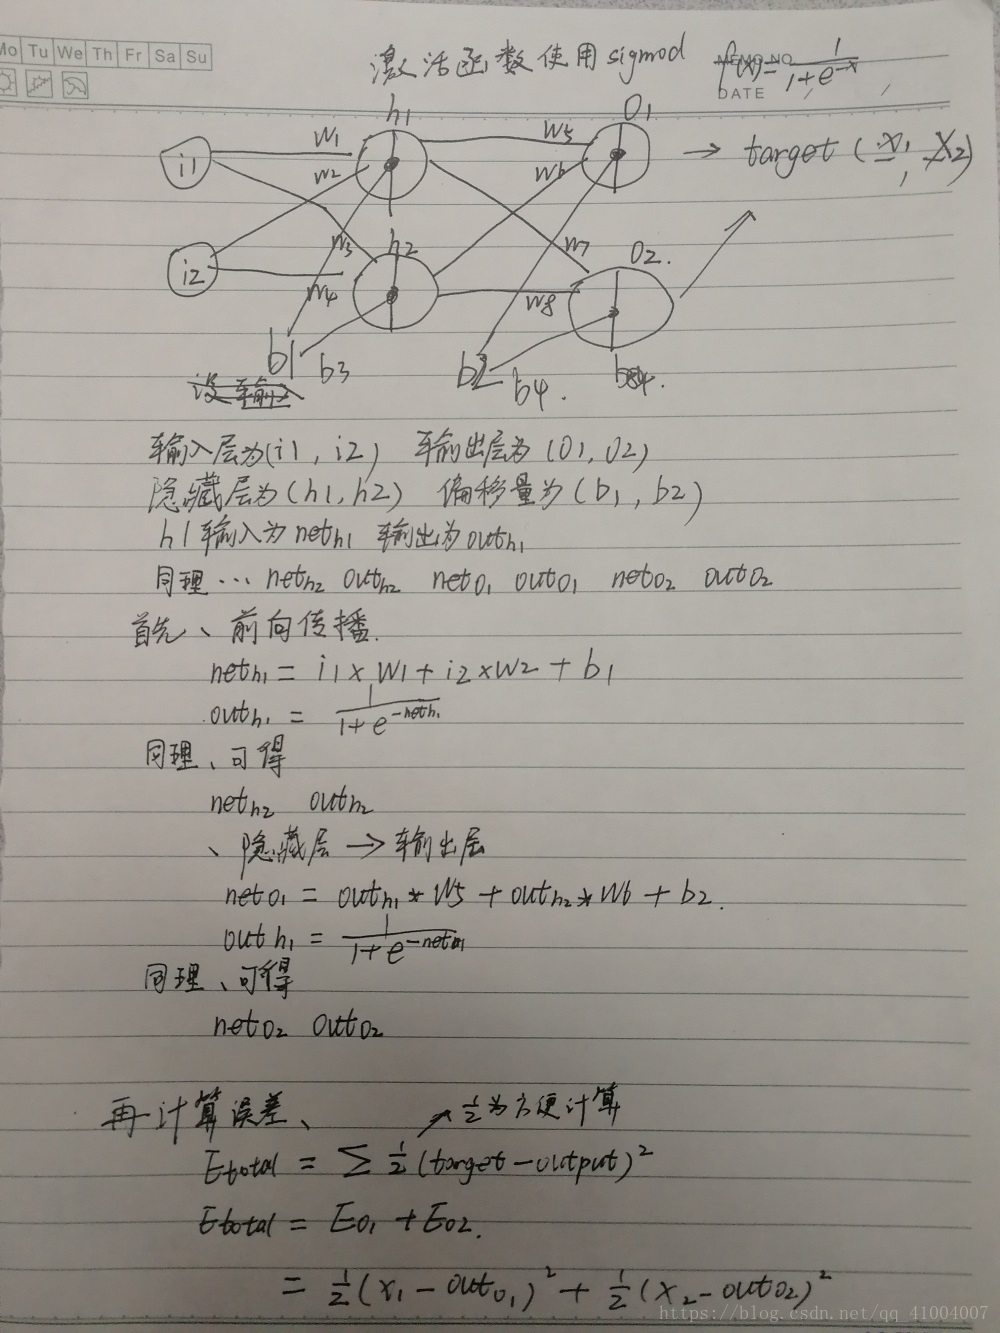 Mo Tu We Th Fr Sa Su
激活函数使用sigmod f(x)=1/(1+e^-x)
MEMO NO.
DATE
h1 O1
i1 w1 w5 → target (x1, x2)
w2 w6
w3 h2 w7 O2.
i2 w4 w8
b1 b3 b2 b4.
没输入
输入层为(i1, i2) 输出层为(O1, O2)
隐藏层为(h1, h2) 偏移量为(b1, b2)
h1输入为neth1 输出为outh1
同理… neth2 outh2 netO1 outO1 netO2 outO2
首先、前向传播.
neth1 = i1×W1+i2×W2+b1
outh1 = 1/(1+e^-neth1)
同理、可得
neth2 outh2
、隐藏层→输出层
netO1 = outh1*W5+outh2*W6+b2.
outh1 = 1/(1+e^-netO1)
同理、可得
netO2 outO2
再计算误差、 ↗½为方便计算
Etotal = ∑½(target-output)²
Etotal = EO1+EO2.
= ½(x1-outO1)²+½(x2-outO2)²
https://blog.csdn.net/qq_41004007